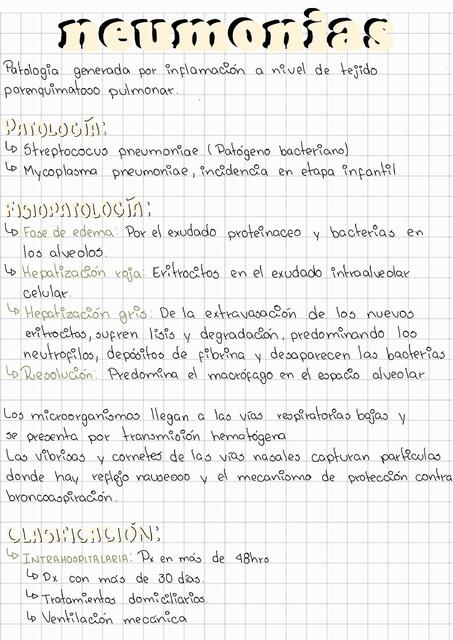 neumonias
Patología generada por inflamación a nivel de tejido
parenquimatoso pulmonar.
PATOLOGÍA:
↳ Streptococus pneumoniae (Patógeno bacteriano)
↳ Mycoplasma pneumoniae, incidencia en etapa infantil
FISIOPATOLOGÍA:
↳ Fase de edema: Por el exudado proteinaceo y bacterias en
los alveolos.
↳ Hepatización roja: Eritrocitos en el exudado intraalveolar
celular.
↳ Hepatización gris: De la extravasación de los nuevos
eritrocitos, sufren lisis y degradación, predominando los
neutrofilos, depósitos de fibrina y desaparecen las bacterias
↳ Resolución: Predomina el macrófago en el espacio alveolar.
Los microorganismos llegan a las vías respiratorias bajas y
se presenta por transmisión hematógena
Las vibrisas y cornetes de las vías nasales capturan partículas
donde hay reflejo nauseoso y el mecanismo de protección contra
broncoaspiración.
CLASIFICACIÓN:
↳ INTRAHOSPITALARIA: Px en más de 48hrs
↳ Dx con más de 30 días.
↳ Tratamientos domiciliarios.
↳ Ventilación mecánica